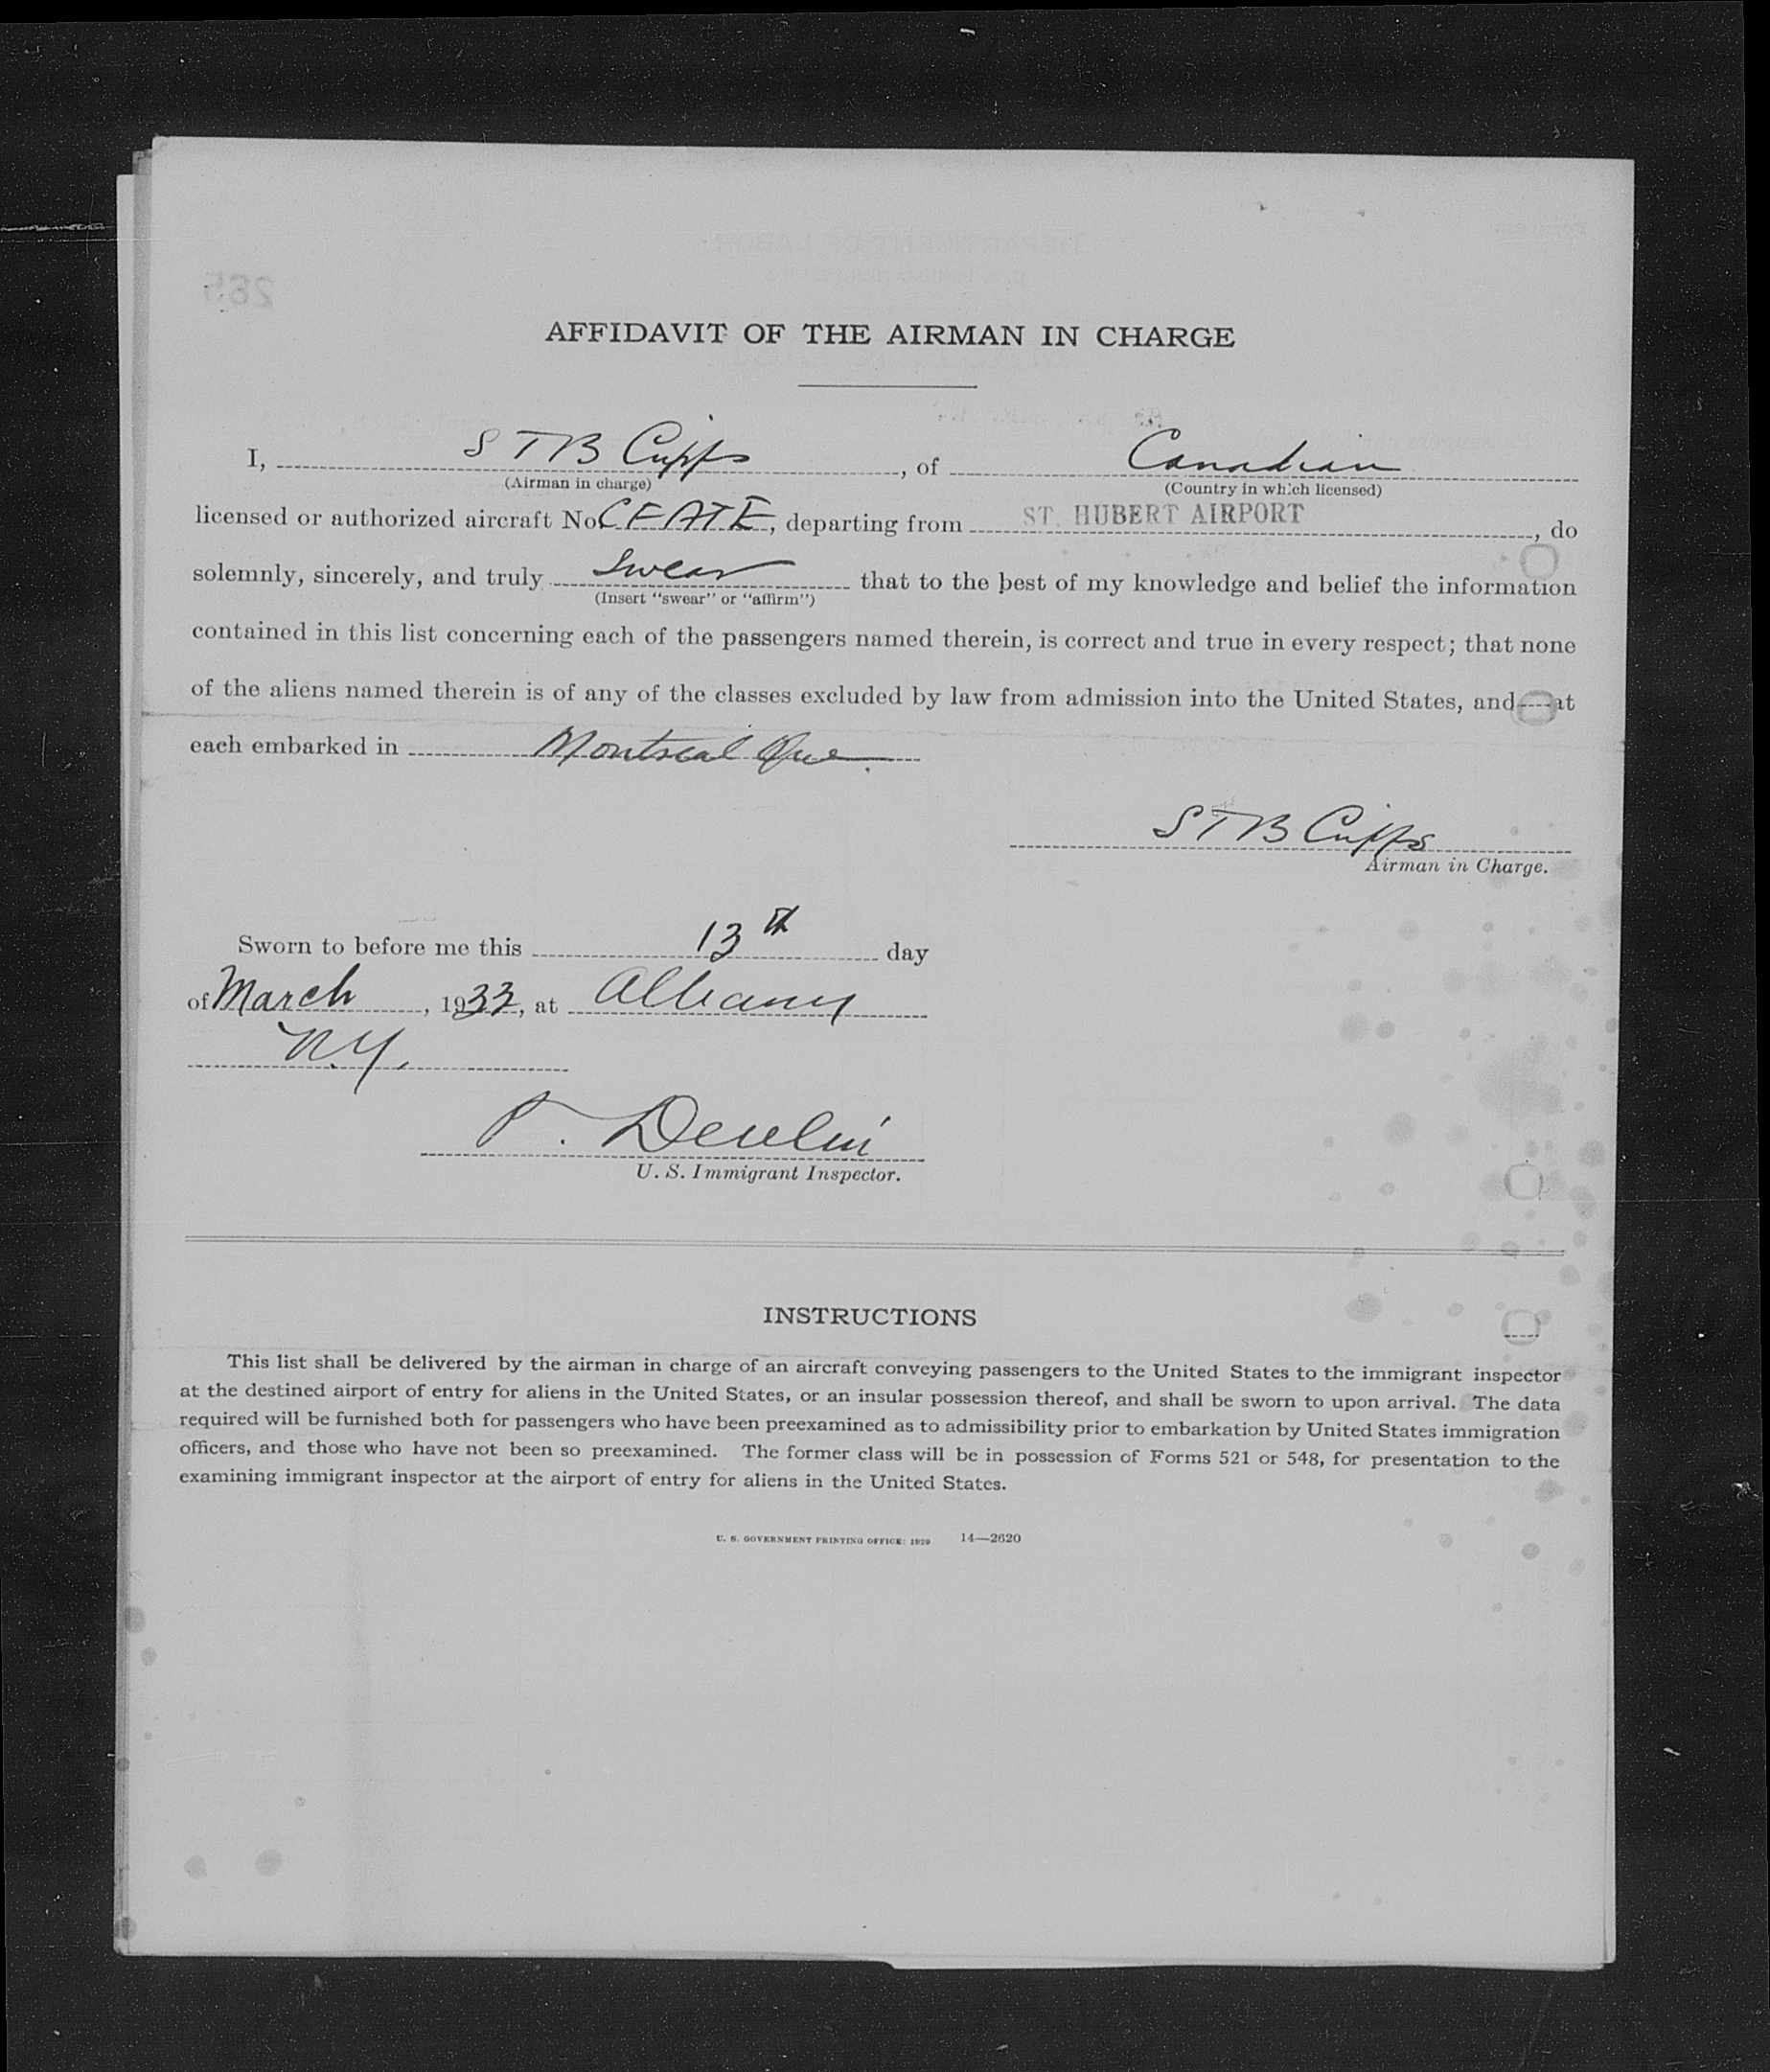 AFFIDAVIT OF THE AIRMAN IN CHARGE
I, S T B Cripps, of Canadian
(Airman in charge) (Country in which licensed)
licensed or authorized aircraft No. CF ATE, departing from ST. HUBERT AIRPORT, do
solemnly, sincerely, and truly Swear that to the best of my knowledge and belief the information
(Insert "swear" or "affirm")
contained in this list concerning each of the passengers named therein, is correct and true in every respect; that none
of the aliens named therein is of any of the classes excluded by law from admission into the United States, and at
each embarked in Montreal Que.
S T B Cripps
Airman in Charge.
Sworn to before me this 13th day
of March, 1933, at Albany
N.Y.
P. Devlin
U. S. Immigrant Inspector.
INSTRUCTIONS
This list shall be delivered by the airman in charge of an aircraft conveying passengers to the United States to the immigrant inspector
at the destined airport of entry for aliens in the United States, or an insular possession thereof, and shall be sworn to upon arrival. The data
required will be furnished both for passengers who have been preexamined as to admissibility prior to embarkation by United States immigration
officers, and those who have not been so preexamined. The former class will be in possession of Forms 521 or 548, for presentation to the
examining immigrant inspector at the airport of entry for aliens in the United States.
U. S. GOVERNMENT PRINTING OFFICE: 1929 14—2620